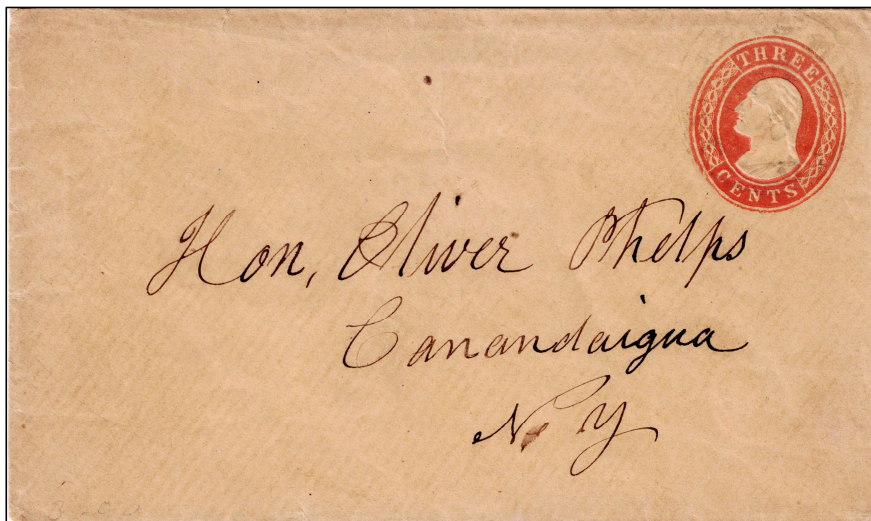 THREE
CENTS
Hon, Oliver Phelps
Canandaigua
N. Y